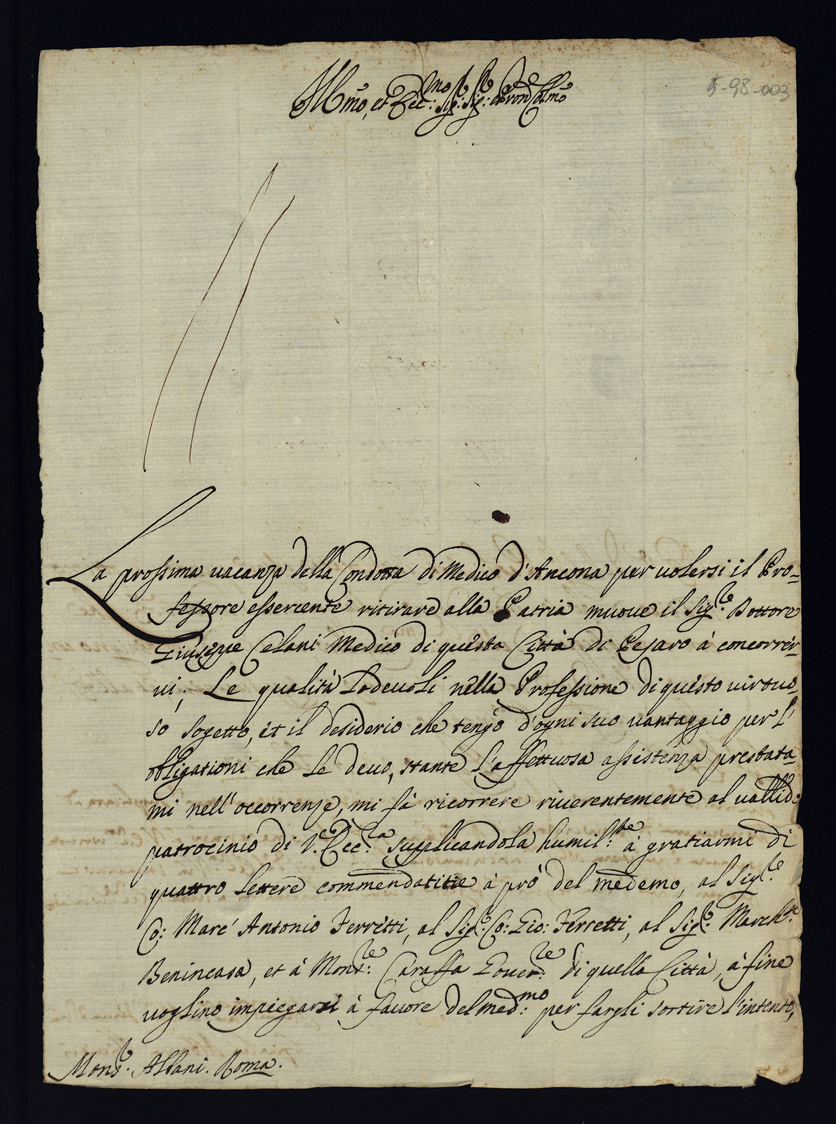 Ill:mo, et Ecc:mo Sig:re Sig:re Pron Col:mo
5-98-003
La prossima vacanza della Condotta di Medico d'Ancona per volersi il Pro-
fessore essercente ritirare alla Patria muove il Sig:re Dottore
Giuseppe Celani Medico di questa Città di Pesaro à concorrer-
vi; Le qualità Lodevoli nella Professione di questo virtuo-
so sogetto, et il desiderio che tengo d'ogni suo vantaggio per l'
obligationi che le devo, stante l'affettuosa assistenza prestata-
mi nell'occorrenze, mi fà ricorrere riverentemente al vallido
patrocinio di V. Ecc:a supplicandola humil:te à gratiarmi di
quattro lettere commendatitie à prò del medemo, al Sig:re
Co: Marc'Antonio Ferretti, al Sig:re Co: Gio: Ferretti, al Sig:re March:e
Benincasa, et à Mons:re Caraffa Gover:re di quella Città, à fine
voglino impiegarsi à favore del med:mo per fargli sortire l'intento,
Mons:re Albani. Roma.